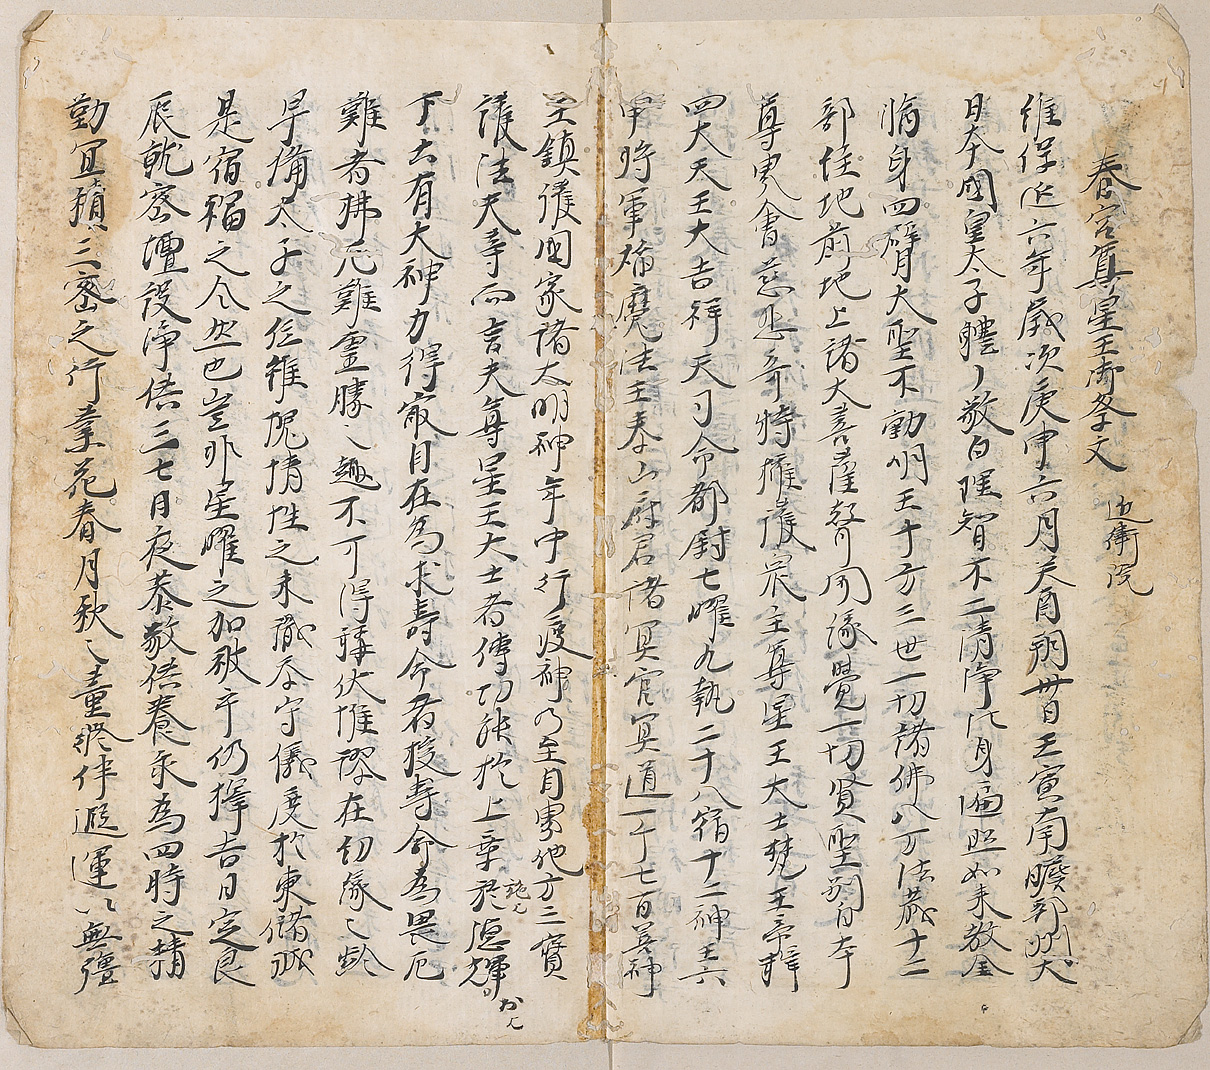 春宮尊星王御祭文 近衛院
維保延六年歳次庚申六月癸酉朔卅日壬寅南瞻部州大
日本國皇太子體ノ敬白理智不二清浄法身遍照如来教令
輪身四臂大聖不動明王十方三世一切諸佛八万法蔵十二
部住地前地上諸大菩薩声聞縁覺一切賢聖別白本
尊界會慈悲奇特擁護衆主尊星王大士梵王帝釋
四大天王大吉祥天司命都尉七曜九執二十八宿十二神王六
甲将軍焔魔法王泰山府君諸冥官冥道一千七百善神
王鎮護國家諸大明神年中行疫神乃至自界他方三寶
護法夫等而言夫尊星王大士者傳功能於上章施徳輝
施也 於也
下土有大神力得寂自在為求壽命者授壽命為畏厄
難者拂厄難霊勝之趣不可得稱伏惟謬在幼縁之齢
早備太子之位雖愧情性之未融忝守儀度於東儲誠
是宿福之令然也豈非星曜之加被乎仍擇吉日定良
辰就密壇設浄供三七月夜恭敬供養永為四時之精
勤宜積三密之行業花春月秋之量終伴遐運以無彊